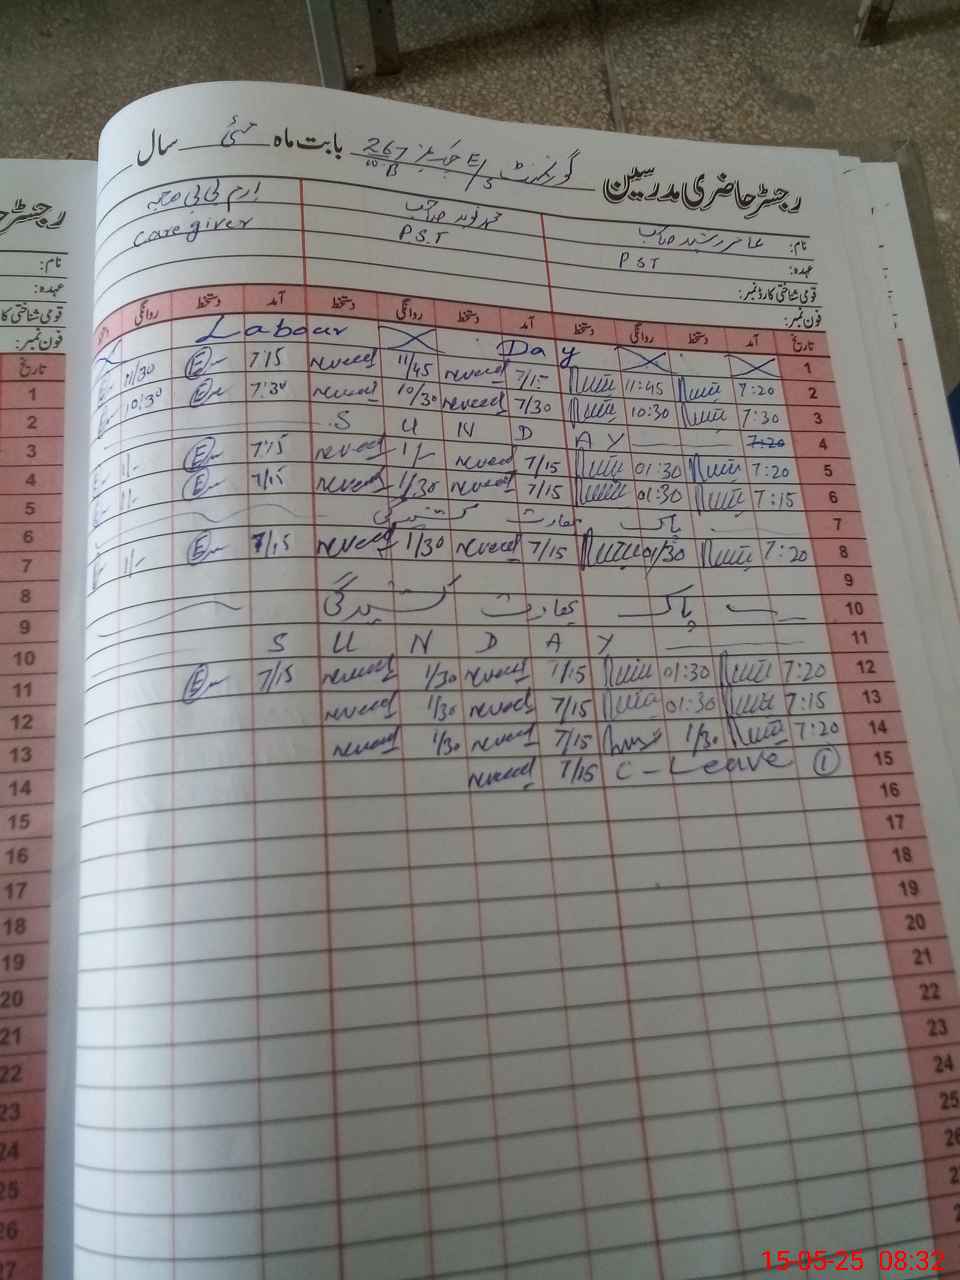 رجسٹر حاضری مدرسین گورنمنٹ E/S 267 B بابت ماہ مئی سال
نام: عامر رشید صاحب
ارم بی بی صاحبہ
عہدہ: PST P.S.T Caregiver
قومی شناختی کارڈ نمبر:
فون نمبر:
تاریخ آمد دستخط روانگی دستخط آمد دستخط روانگی دستخط آمد دستخط روانگی
1 Labour Day
2 7:20 11:45 7/15 naveed 11/45 naveed 7:15 11/30
3 7:30 10:30 7/30 naveed 10/30 naveed 7:30 10:30
4 7:20 SUNDAY
5 7:20 01:30 7/15 naveed 1/- naveed 7:15 1/-
6 7:15 01:30 7/15 naveed 1/30 naveed 7/15 1/-
7 پاک بھارت کشیدگی
8 7:20 01/30 7/15 naveed 1/30 naveed 7/15 1/-
9
10 پاک بھارت کشیدگی
11 SUNDAY
12 7:20 01:30 7/15 naveed 1/30 naveed 7/15
13 7:15 01:30 7/15 naveed 1/30 naveed
14 7:20 1/30 7/15 naveed 1/30 naveed
15 C-Leave ① 7/15 naveed
16
17
18
19
20
21
22
23
24
25
26
رجسٹر
نام:
عہدہ:
قومی شناختی کا
فون نمبر:
تاریخ
1
2
3
4
5
6
7
8
9
10
11
12
13
14
15
16
17
18
19
20
21
22
23
24
25
26
27
15-05-25 08:32